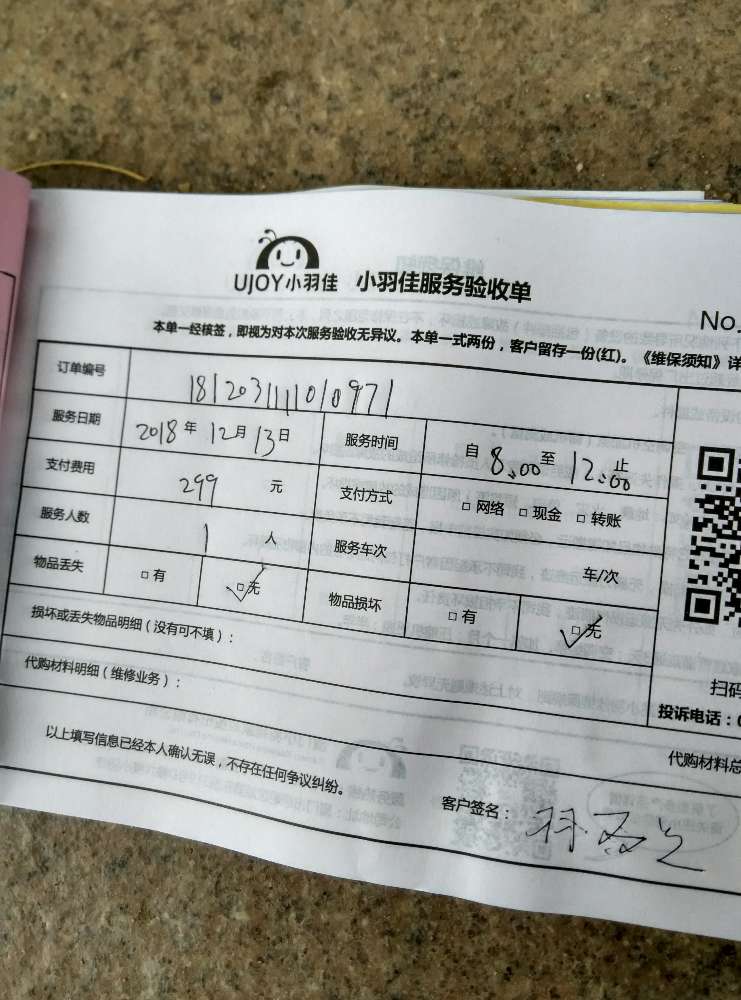 UJOY小羽佳 小羽佳服务验收单
No.
本单一经核签，即视为对本次服务验收无异议。本单一式两份，客户留存一份(红)。《维保须知》详
订单编号 181203111010971
服务日期 2018年12月13日 服务时间 自8:00至12:00止
支付费用 299 元 支付方式 □网络 □现金 □转账
服务人数 1 人 服务车次 车/次
物品丢失 □有 ☑无 物品损坏 □有 ☑无
损坏或丢失物品明细（没有可不填）：
代购材料明细（维修业务）：
扫码
投诉电话：0
代购材料总
以上填写信息已经本人确认无误，不存在任何争议纠纷。
客户签名：